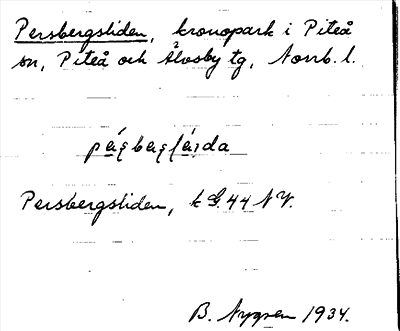 Persbergsliden, kronopark i Piteå
sn, Piteå och Älvsby tg, Norrb. l.
Persbergsliden, k S. 44 NV.
B. Nygren 1934.